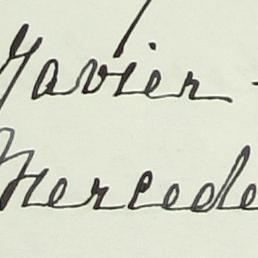 Javier -
Mercede